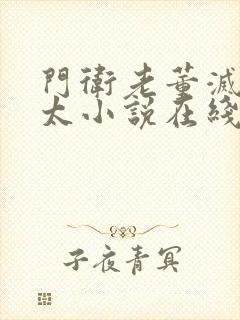 門衛老董滅
太小說在綫
子夜青冥